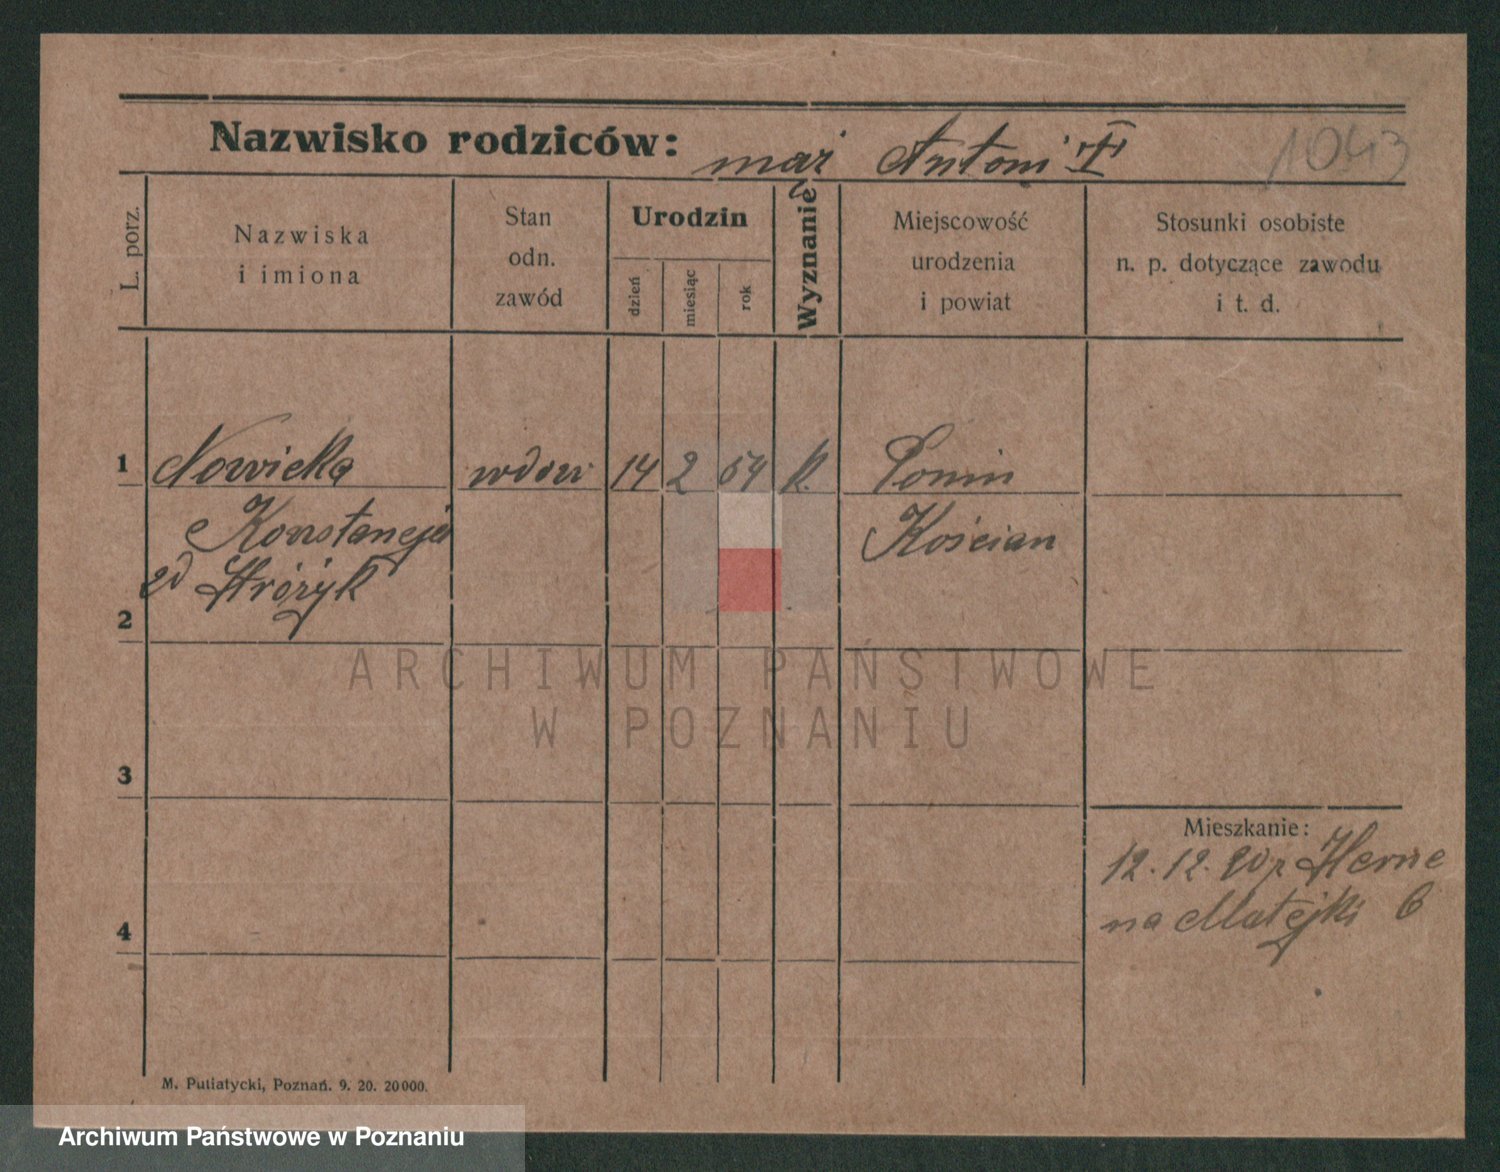 Nazwisko rodziców: mąż Antoni 1043
L. porz.
Nazwiska
i imiona
Stan
odn.
zawód
Urodzin
dzień
miesiąc
rok
Wyznanie
Miejscowość
urodzenia
i powiat
Stosunki osobiste
n. p. dotyczące zawodu
i t. d.
1 Nowicka wdow 14 2 54 k.
Konstancja Kościan
zd Stróżyk
2
ARCHIWUM PAŃSTWOWE
W POZNANIU
3
Mieszkanie:
12.12.20 z Herne
na Matejki 6
4
M. Putiatycki, Poznań. 9. 20. 20000.
Archiwum Państwowe w Poznaniu